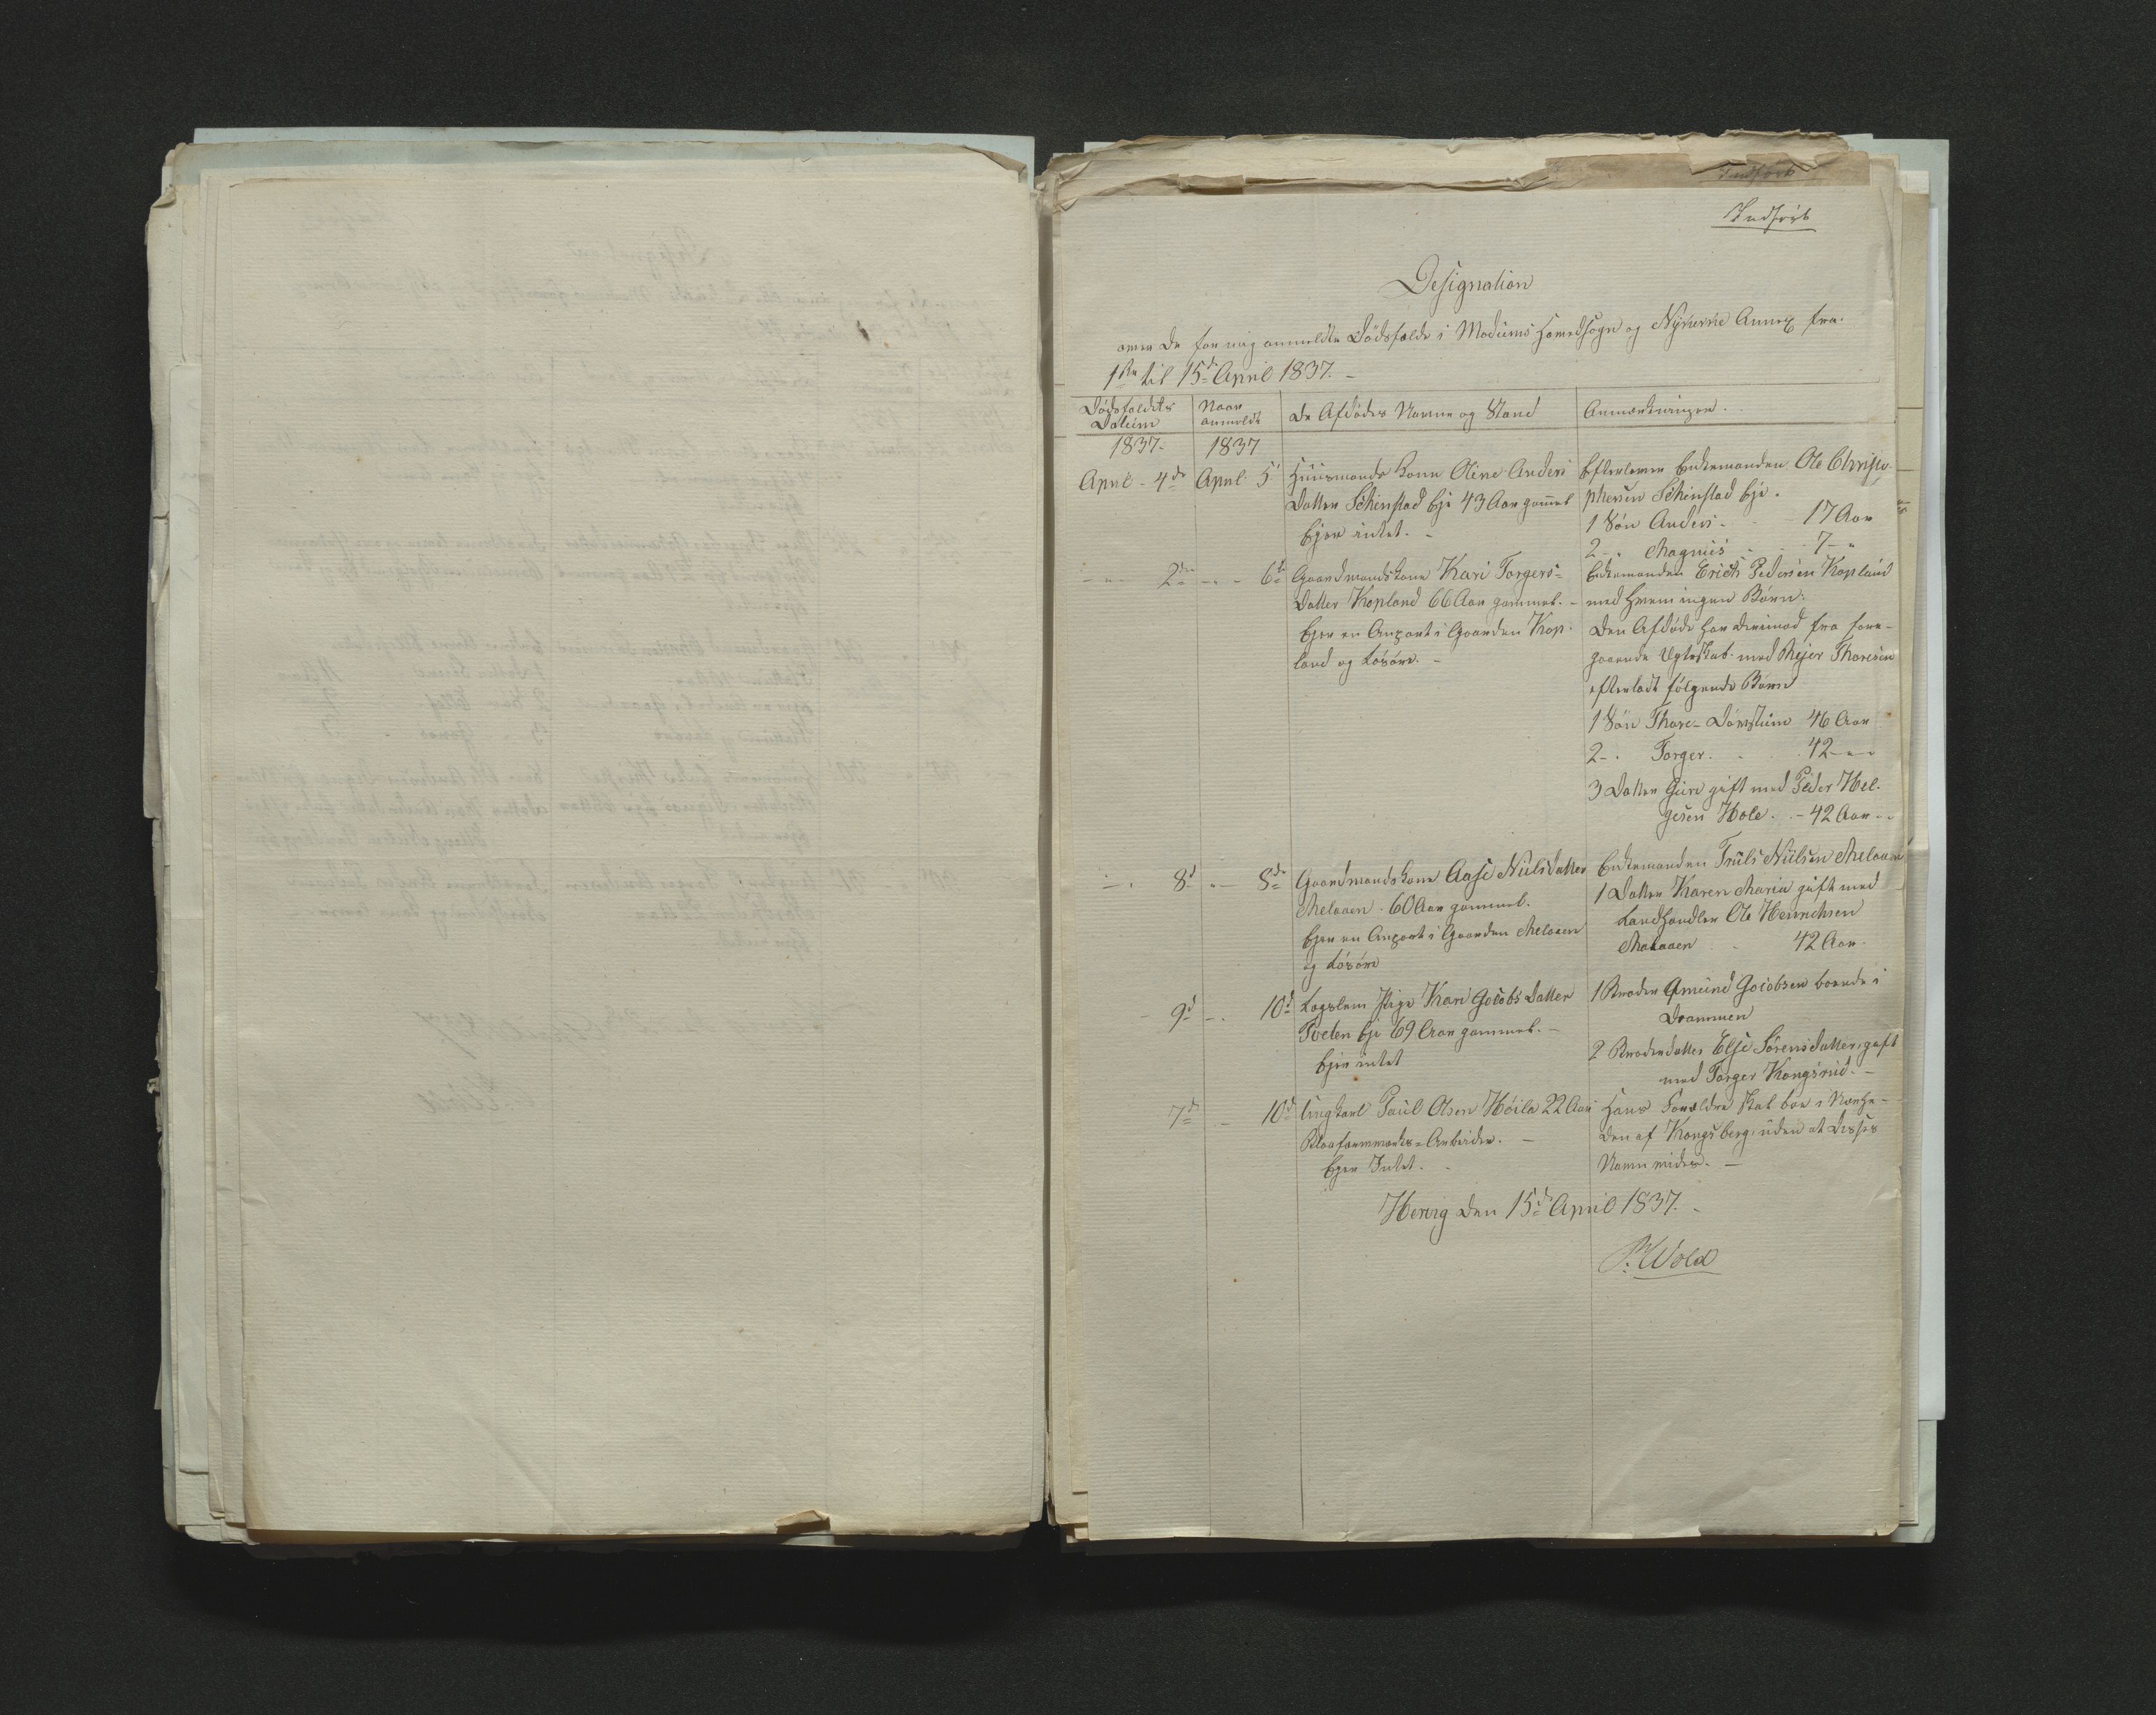 Indført
Indført
Designation
over de for mig anmeldte Dødsfalde i Modums Hovedsogn og Nykirke Annex fra
1ste til 15de April 1837. -
Dødsfaldets Datum
Naar anmeldt
De Afdødes Navne og Stand
Anmærkninger.
1837. 1837
April - 4de April 5
Huusmands Kone Oline Anders
Datter Schinstad Eje 43 Aar gammel
Ejer intet. -
Efterlever Enkemanden Ole Christo-
phersen Schinstad Eje.
1 Søn Anders - 17 Aar
2 - Magnus - 7 - "
2den - 6te
Gaardmandskone Kari Torgers-
Datter Kopland 66 Aar gammel. -
Ejer en Anpart i Gaarden Kop-
land og Løsøre. -
Enkemanden Erich Pedersen Kopland
med hvem ingen Børn.
Den Afdøde har derimod fra fore-
gaaende Egteskab med Rejer Thoresen
efterladt følgende Børn
1 Søn Thore - 46 Aar
2 - Torger. 42 - "
3 Datter Guri gift med Peder Hel-
gesen Hole. - 42 Aar -
8d - 8de
Gaardmands Kone Aase Nielsdatter
Melaaen - 60 Aar gammel.
Ejer en Anpart i Gaarden Melaaen
og Løsøre
Enkemanden Truls Nielsen Melaaen
1 Datter Karen Maria gift med
Landhandler Ole Henrichsen
Melaaen 42 Aar.
- 9d - 10d
Lægslem Pige Kari Jocobs Datter
Tveten Eje 69 Aar gammel. -
Ejer intet
1 Broder Gmund Jocobsen boende i
Drammen
2 Broderdatter Else Sørensdatter, gift
med Torger Kongsrud. -
7d - 10d
Ungkarl Paul Olsen Høila 22 Aar
Blaafarveværks-Arbeider. -
Ejer Intet. -
Hans Forældre skal boe i Nærhe-
den af Kongsberg, uden at Disses
Navne vides. -
Hererg den 15de April 1837. -
P. Wold